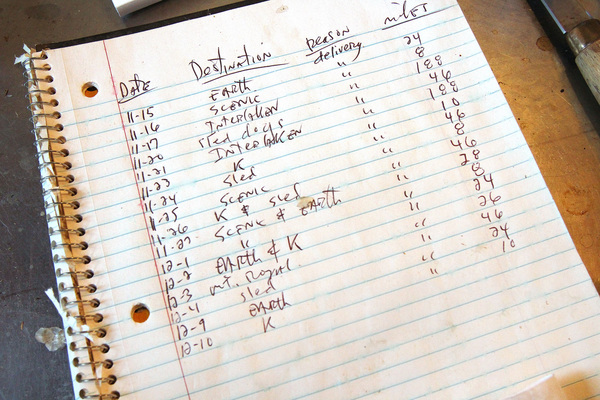 DATE DESTINATION REASON MILES
11-15 EARTH delivery 24
11-16 SCENIC " 8
11-17 INTERLAKEN " 188
11-20 sled dogs " 46
11-21 INTERLAKEN " 188
11-23 K " 10
11-24 sled " 46
11-25 SCENIC " 8
11-26 K & sled " 46
11-27 SCENIC & EARTH " 28
12-1 " " 8
12-2 EARTH & K " 24
12-3 mt. Royal " 26
12-4 sled " 46
12-9 EARTH " 24
12-10 K " 10